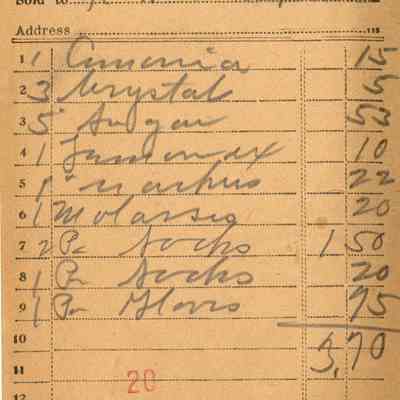 Sold to
Address
1 1 Amonia 15
2 3 Crystal 5
3 5 Sugar 53
4 1 10
5 1 " 22
6 1 Molasses 20
7 2 Pr Socks 1 50
8 1 Pr Socks 20
9 1 Pr Glovs 75
10 3,70
11
20
12